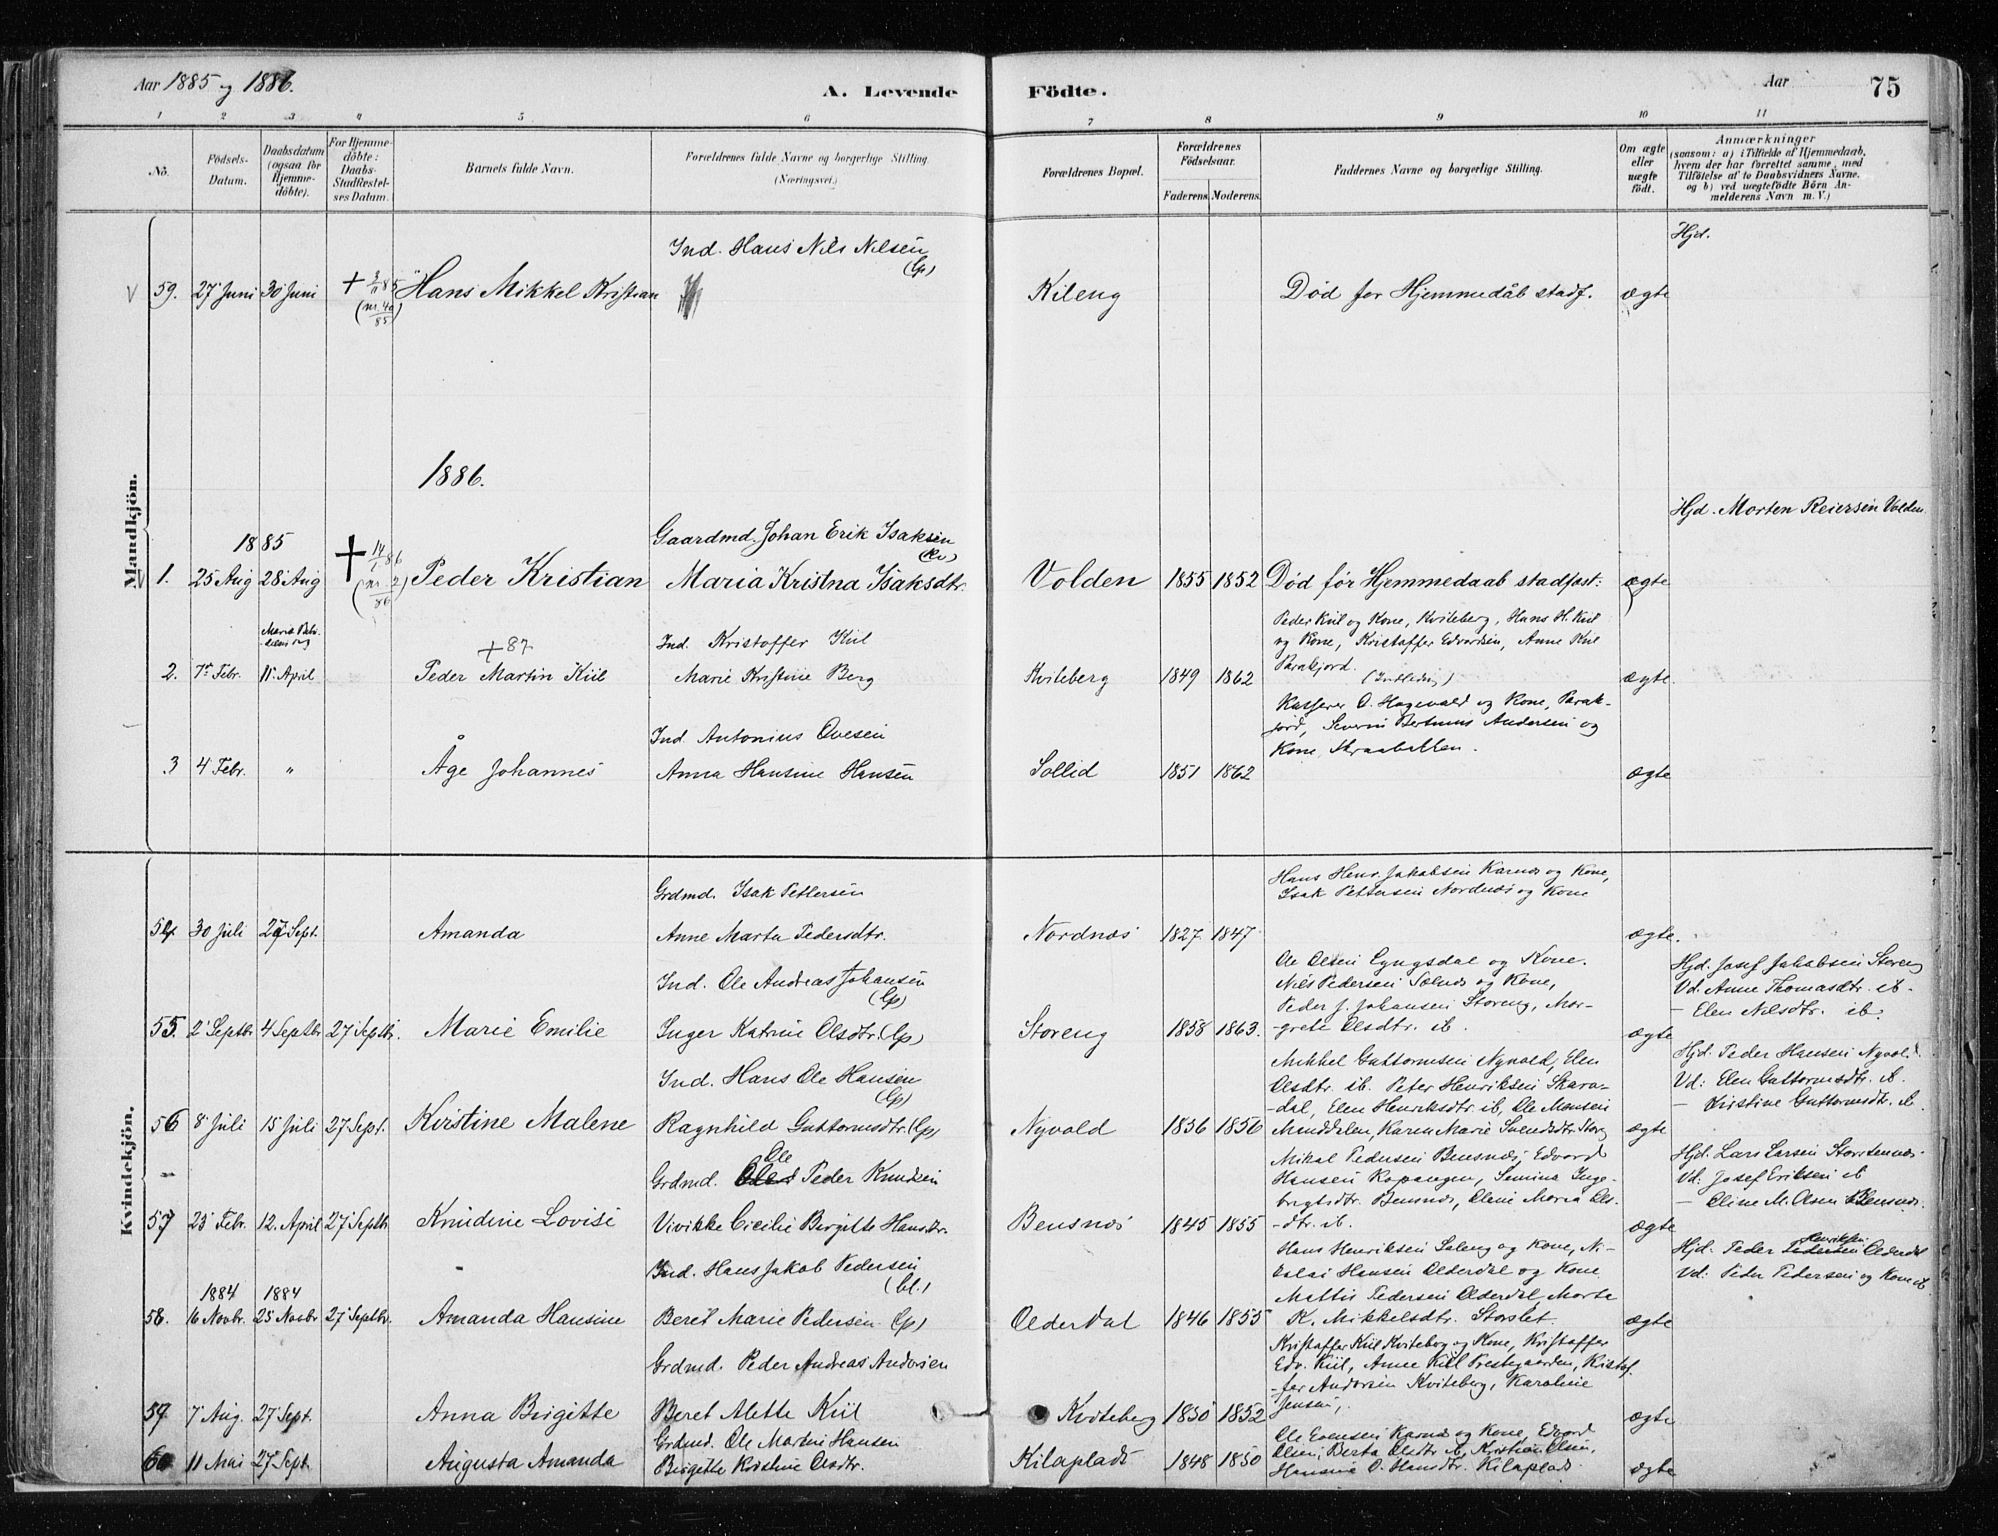 Aar 1885 og 1886.
A. Levende Födte.
Aar
75
1 2 3 4 5 6 7 8 9 10 11
No.
Födsels-Datum.
Daabsdatum (ogsaa for Hjemme-döbte).
For Hjemme-döbte: Daabs-Stadfæstel-ses Datum.
Barnets fulde Navn.
Forældrenes fulde Navne og borgerlige Stilling. (Næringsvei.)
Forældrenes Bopæl.
Forældrenes Födselsaar.
Faderens. Moderens.
Faddernes Navne og borgerlige Stilling.
Om ægte eller uægte födt.
Anmærkninger
(saasom: a) i Tilfælde af Hjemmedaab, hvem der har forrettet samme, med Tilföielse af to Daabsvidners Navne, og b) ved uægtefödte Börn An-melderens Navn m. V.)
Mandkjön.
Ind. Hans Nils Nilsen (Lp)
Hjd.
59. 27 Juni 30 Juni + 3/11 85 (nr. 40/85) Hans Mikkel Kristian Kileng Död for Hjemmedåb stadf. ægte
1886.
1885
Gaardmd. Johan Erik Isaksen (Kv)
Hjd. Morten Reiersen Volden
1. 25 Aug 28 Aug + 14/1 86 (nr. 2/86) Peder Kristian Maria Kristna Isaksdtr. Volden 1855 1852 Död før Hjemmedaab stadfæst: ægte
+87
Ind. Kristoffer Kiil
Peder Kiil og Kone, Kviteberg, Hans H. Kiil
og Kone, Kristoffer Edvardsen, Anne Kiil
2. 7de Febr. 11 April Peder Martin Kiil Marie Kristine Berg Kviteberg 1849 1862 ægte.
Ind. Antonius Ovesen
Kasserer O. Hagevold og Kone,
Severin Andersen og
Kone
3 4 Febr. " Åge Johannes Anna Hansine Hansen Sollid 1851 1862 ægte
Kvindekjön.
Grdmd. Isak Pettersen
Hans Henr. Jakobsen Karnes og Kone,
Isak Pettersen Nordnæs og Kone
54 30 Juli 27 Sept. Amanda Anne Marta Pedersdtr. Nordnæs 1827 1847 ægte.
Ind. Ole Andreas Johansen (Lp)
Ole Olsen Lyngsdal og Kone.
Nils Pedersen Solnæs og Kone,
Peder J. Johansen Storeng, Mar-
-grete Olsdtr. ib.
Hjd. Josef Jakobsen Storeng
Vd. Anne Thomasdtr. ib.
- Elen Nilsdtr. ib.
55. 2 Septbr 4 Septbr 27 Septbr. Marie Emilie Inger Katrine Olsdtr. (Lp) Storeng 1858 1863. ægte
Ind. Hans Ole Hansen (Lp)
Mikkel Guttormsen Nyvold, Elen
Olsdtr. ib. Peter Henriksen Skara-
-dal, Elen Henriksdtr. ib, Ole Monsen
Hjd: Peder Hansen Nyvold
Vd: Elen Guttormsdtr. ib.
- Kirstine Guttormsdtr. ib.
56 8 Juli 15 Juli 27 Sept. Kirstine Malene Ragnhild Guttormsdtr. (Lp) Nyvold 1836 1856 Manddalen, Karen Marie Svendsdtr. ægte
Grdmd. Ole Peder Knudsen
Mikal Pedersen Bensnæs, Edvard
Hansen Kopangen, Semine Inge-
brigtsdtr. Bensnæs, Oline Maria Ols-
-dtr. ib.
Hjd. Lars Larsen Storstennæs.
Vd: Josef Eriksen ib
- Oline M. Olsen Bensnæs.
57 25 Febr. 12. April 27 Septbr. Knudine Lovise Vivikke Cicilie Birgitte Hansdtr. Bensnæs 1845 1855 ægte
Ind. Hans Jakob Pedersen
Hans Henriksen Soleng og Kone, Ni-
kolai Hansen Olderdal og Kone
Mattis Pedersen Olderdal Marte
K. Mikkelsdtr. Storslet.
Hjd. Peder Henriksen Olderdal
Vd: Peder Pedersen og Kone ib
1884 1884
58. 16 Novbr. 25 Novbr 27 Septbr. Amanda Hansine Beret Marie Pedersen (Lp) Olderdal 1846 1855 ægte
Grdmd. Peder Andreas Andersen
Kristoffer Kiil Kviteberg og Kone, Kristoffer
Edv. Kiil, Anne Kiil Prestegaarden, Kristof-
-fer Andersen Kviteberg, Karoline
Jensen,
59. 7 Aug. 27 Sept. Anna Birgitte Beret Alette Kiil Kviteberg 1850 1852 ægte
Grdmd. Ole Martin Hansen
Ole Evensen Karnæs og Kone, Edvard
Olsen, Berta Olsdtr. ib, Kristian Olsen,
Hansine O. Hansdtr. Kilaplads
60 11 Mai 27 Sept. Augusta Amanda Birgitte Kristine Olsdtr. Kilaplads 1848 1850 ægte